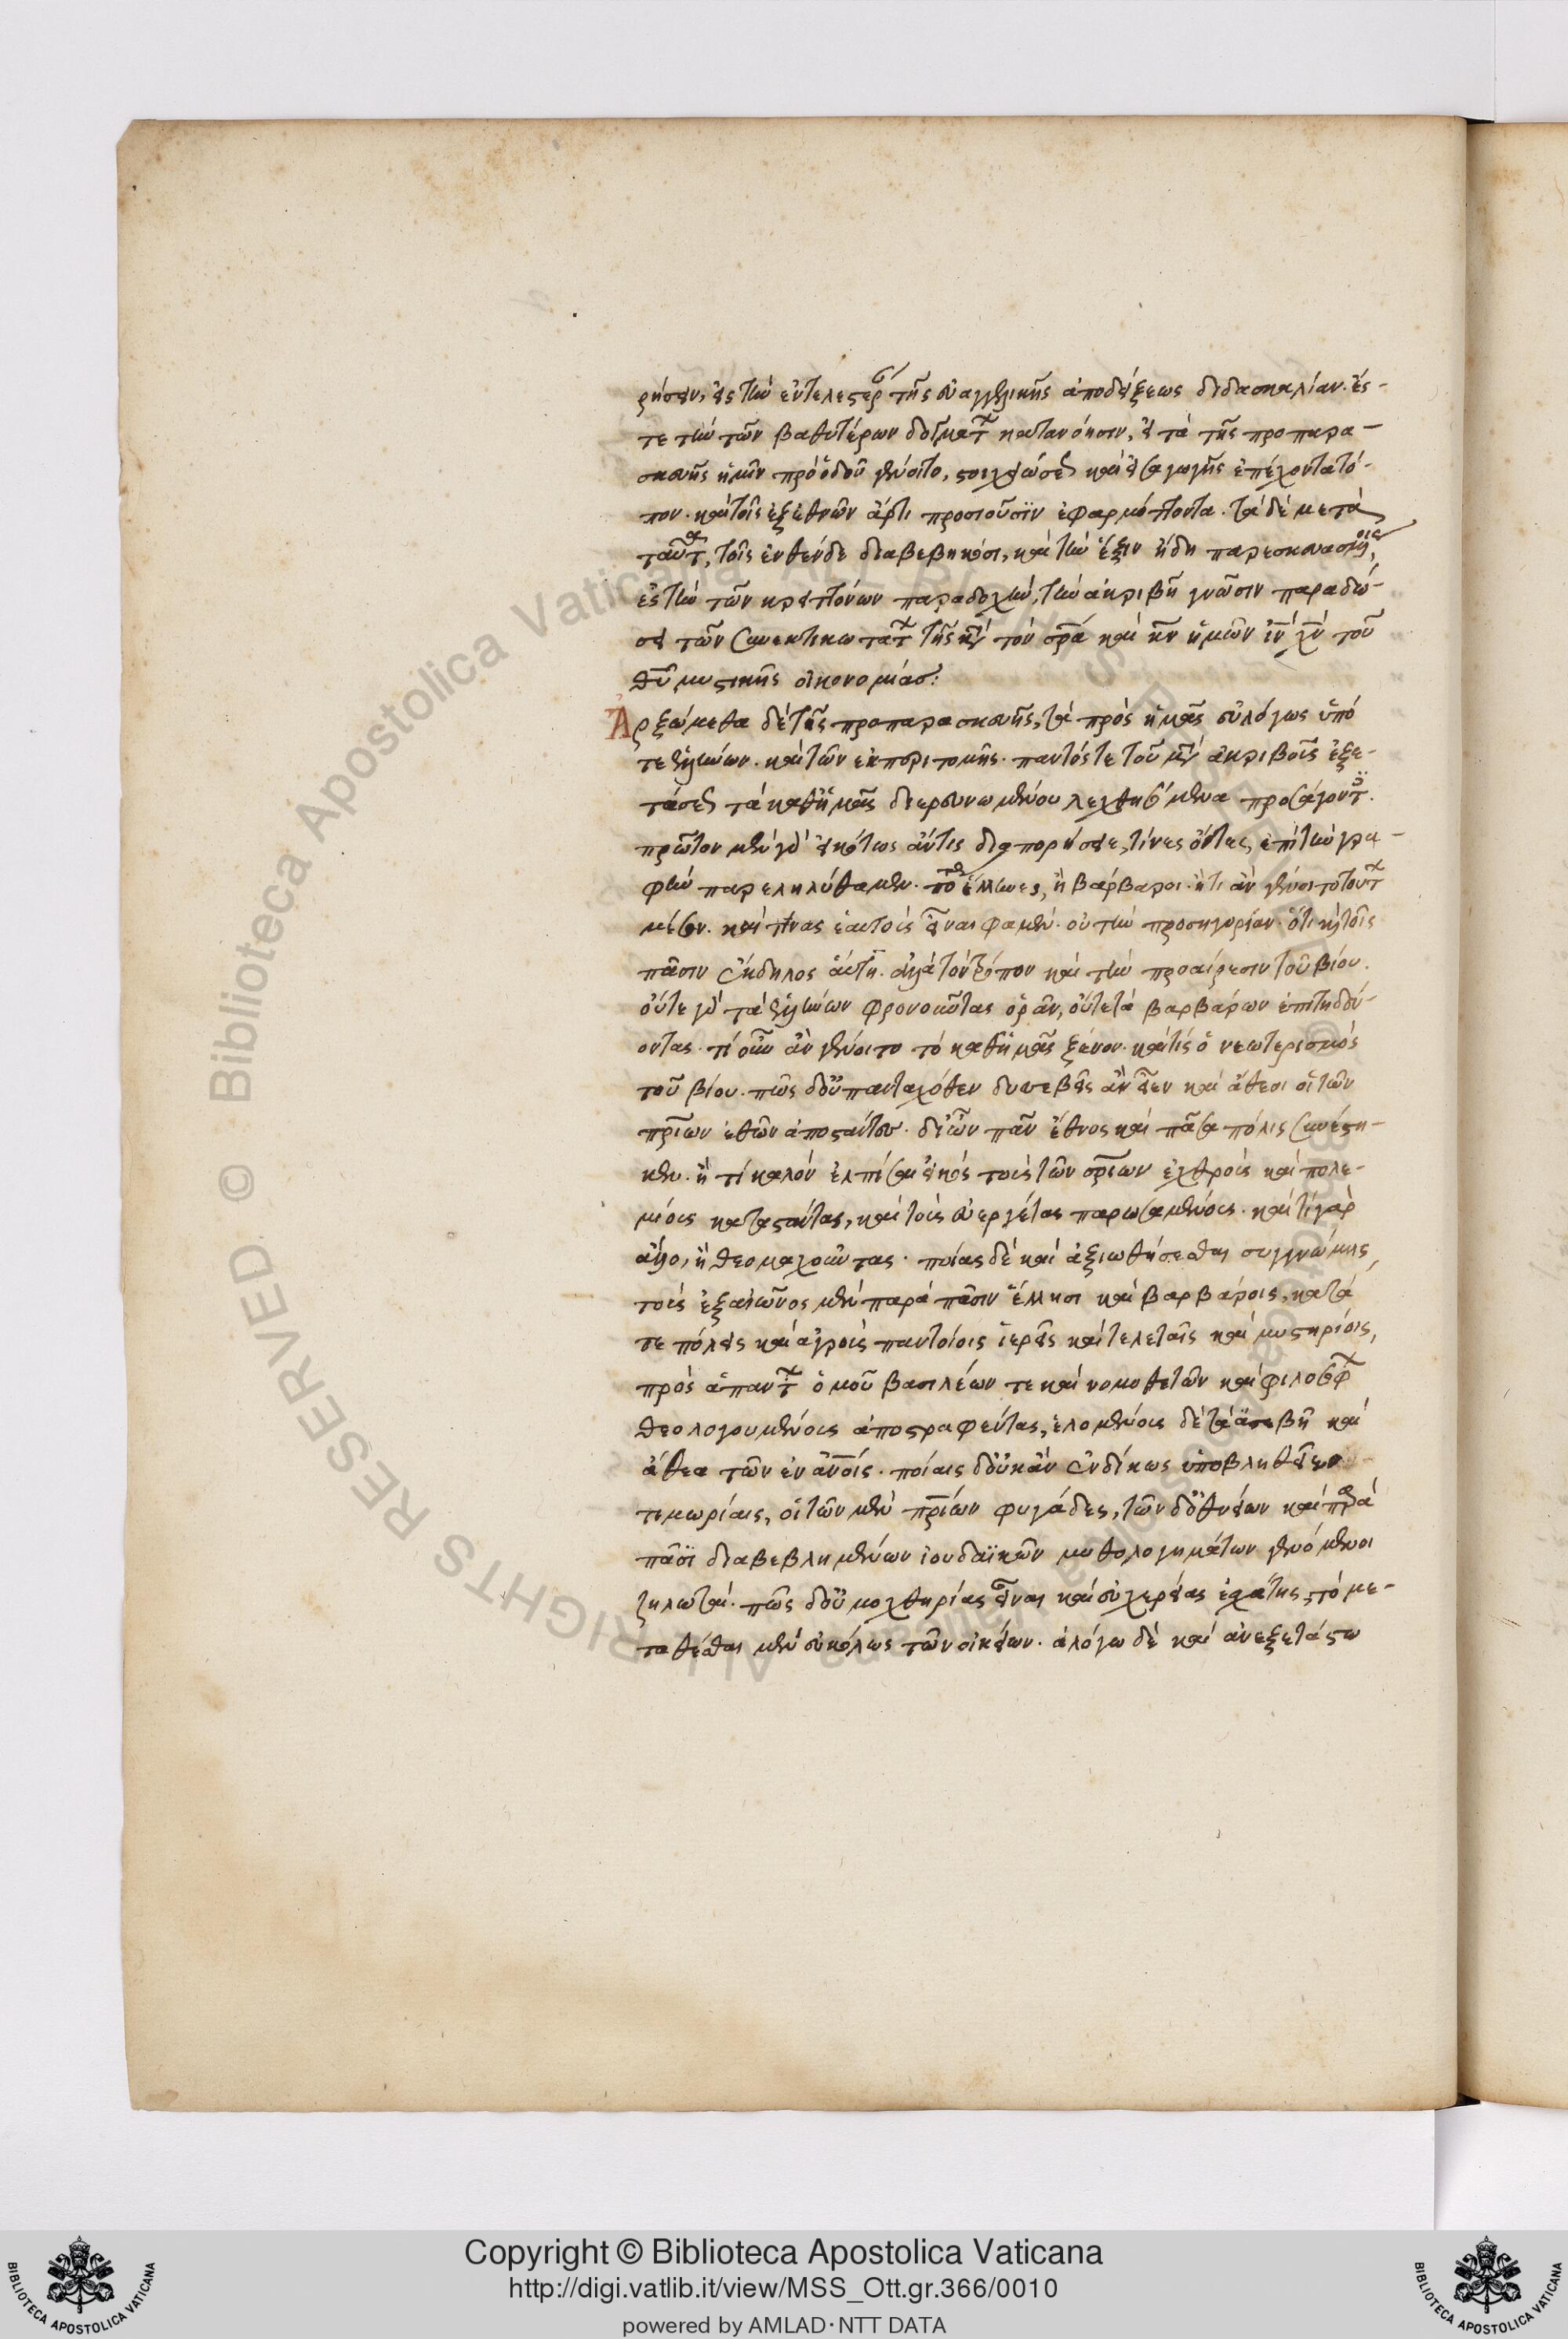 ρήσειν, εἰς τὴν ἐντελεστέρ τῆς εὐαγγελικῆς ἀποδείξεως διδασκαλίαν. εἴς-
τε τὴν τῶν βαθυτέρων δογματ κατανόησιν, εἰ τὰ τῆς προπαρα-
σκευῆς ἡμῖν πρὸ ὁδοῦ γένοιτο, στοιχειώσεως καὶ εἰσαγωγῆς ἐπέχοντα τό-
πον. καὶ τοῖς ἐξ ἐθνῶν ἄρτι προσιοῦσϊν ἐφαρμόττοντα. τὰ δὲ μετὰ
ταῦτα, τοῖς ἐνθένδε διαβεβηκόσι, καὶ τὴν ἕξιν ἤδη παρεσκευασμένοις,
εἰς τὴν τῶν κρειττόνων παραδοχὴν, τὴν ἀκριβῆ γνῶσιν παραδώ-
σει τῶν συνεκτικωτατ τῆς κατὰ τὸν σρα καὶ κν ἡμῶν ιν χν τοῦ
θυ μυστικῆς οἰκονομίας:
Ἀρξώμεθα δὲ τῆς προπαρασκευῆς, τὰ πρὸς ἡμᾶς εὐλόγως ὑπό
τε ἑλλήνων. καὶ τῶν ἐκ περιτομῆς. παντός τε τοῦ μετὰ ἀκριβοῦς ἐξε-
τάσεως τὰ καθ' ἡμᾶς διερευνωμένου λεχθησόμενα προσάγοντες.
πρῶτον μὲν γὰρ εἰκότως ἄν τις διαπορήσειε, τίνες ὄντες, ἐπὶ τὴν γρα-
φὴν παρεληλύθαμεν. πότερον ἕλληνες, ἢ βάρβαροι. ἢ τί ἂν γένοιτο τουτ
μέσον. καὶ τίνας ἑαυτοὺς εἶναι φαμὲν. οὐ τὴν προσηγορίαν. ὅτι καὶ τοῖς
πᾶσιν ἔκδηλος αὕτη. ἀλλὰ τὸν τρόπον καὶ τὴν προαίρεσιν τοῦ βίου.
οὔτε γὰρ τὰ ἑλλήνων φρονοῦντας ὁρᾶν, οὔτε τὰ βαρβάρων ἐπιτηδεύ-
οντας. τί οὖν ἂν γένοιτο τὸ καθ' ἡμᾶς ξένον. καὶ τίς ὁ νεωτερισμὸς
τοῦ βίου. πῶς δ' οὐ πανταχόθεν δυσεβεῖς ἂν εἶεν καὶ ἄθεοι οἱ τῶν
πρίων ἐθῶν ἀποστάντες. δι' ὧν πᾶν ἔθνος καὶ πᾶσα πόλις συνέστη-
κεν. ἢ τί καλὸν ἐλπίσαι εἰκὸς τοὺς τῶν σρίων ἐχθροὺς καὶ πολε-
μίους καταστάντας, καὶ τοὺς εὐεργέτας παρωσαμένους. καὶ τί γὰρ
ἄλλο, ἢ θεομαχοῦντας. ποίας δὲ καὶ ἀξιωθήσεσθαι συγγνώμης,
τοὺς ἐξ αἰῶνος μὲν παρὰ πᾶσιν ἕλλησι καὶ βαρβάροις, κατά
τε πόλεις καὶ ἀγροὺς παντοίοις ἱεροῖς καὶ τελεταῖς καὶ μυστηρίοις,
πρὸς ἁπάντ ὁμοῦ βασιλέων τε καὶ νομοθετῶν καὶ φιλοσόφ
θεολογουμένους ἀποστραφέντας, ἑλομένους δὲ τὰ ἀσεβῆ καὶ
ἄθεα τῶν ἐν ανοις. ποίαις δ' οὐκ ἂν ἐνδίκως ὑποβληθεῖεν
τιμωρίαις, οἱ τῶν μὲν πρίων φυγάδες, τῶν δ' ὀθνείων καὶ παρὰ
πᾶσϊ διαβεβλημένων ἰουδαϊκῶν μυθολογημάτων γενόμενοι
ζηλωταί. πῶς δ' οὐ μοχθηρίας εἶναι καὶ εὐχερείας ἐσχάτης, τὸ με-
ταθέσθαι μὲν εὐκόλως τῶν οἰκείων. ἀλόγω δὲ καὶ ἀνεξετάστω
Copyright © Biblioteca Apostolica Vaticana
http://digi.vatlib.it/view/MSS_Ott.gr.366/0010
powered by AMLAD·NTT DATA